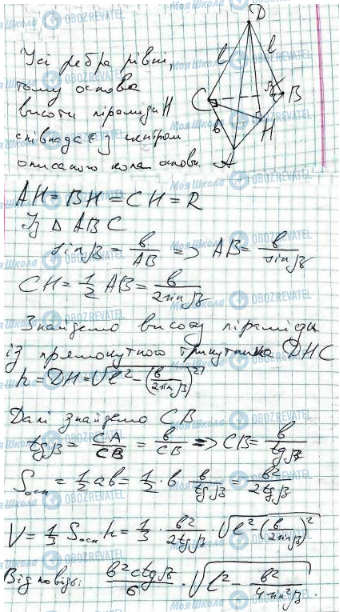 D
l l
C β B
b H
A
Усі ребра рівні,
тому основа
висоти піраміди H
співпадає з центром
описаного кола основи.
AH = BH = CH = R
Із Δ ABC
sin β = b/AB => AB = b/sin β
CH = 1/2 AB = b/(2 sin β)
Знайдемо висоту піраміди
із прямокутного трикутника DHC
h = DH = √(l² - (b/(2 sin β))²)
Далі знайдемо CB
tg β = CA/CB = b/CB => CB = b/tg β
Sосн = 1/2 ab = 1/2 · b · b/tg β = b²/(2 tg β)
V = 1/3 Sосн h = 1/3 · b²/(2 tg β) · √(l² (b/(2 sin β))²)
Відповідь: b² ctg β/6 · √(l² - b²/(4 sin² β)).
Моя Школа
OBOZREVATEL